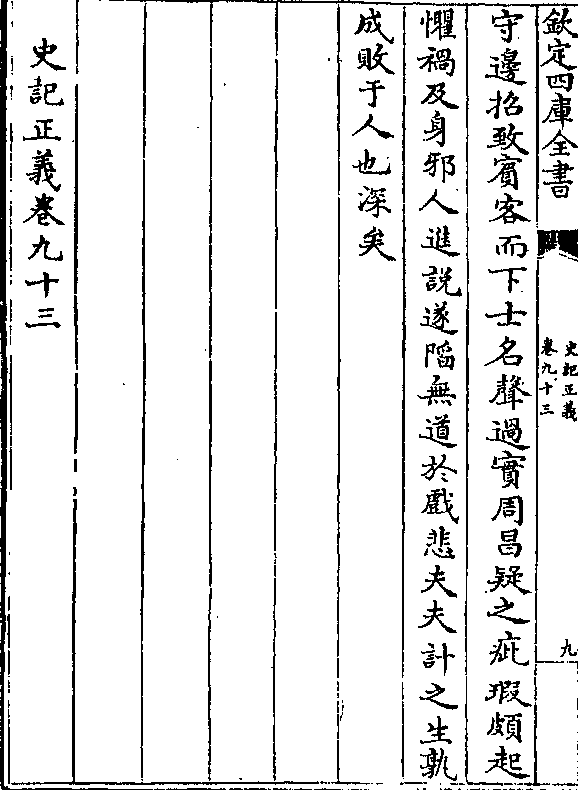 欽定四庫全書
史記正義
卷九十三
九
守邊招致賓客而下士名聲過實周昌疑之疵瑕頗起
懼禍及身邪人進説遂陷無道於戲悲夫夫計之生孰
成敗于人也深矣
史記正義卷九十三